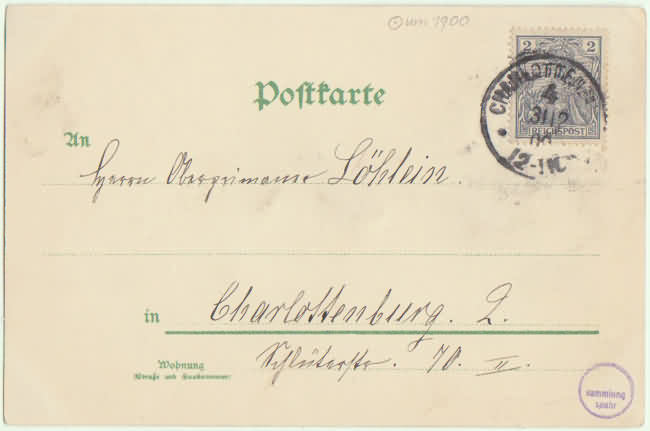 um 1900
2 2
REICHSPOST
CHARLOTTENB
4
31 12
00
12-1N
Postkarte
An
Herrn Oberprimaner Löhlein.
in Charlottenburg. 2.
Wohnung
(Straße und Hausnummer)
Schlüterstr. 70. II.
sammlung
spohr